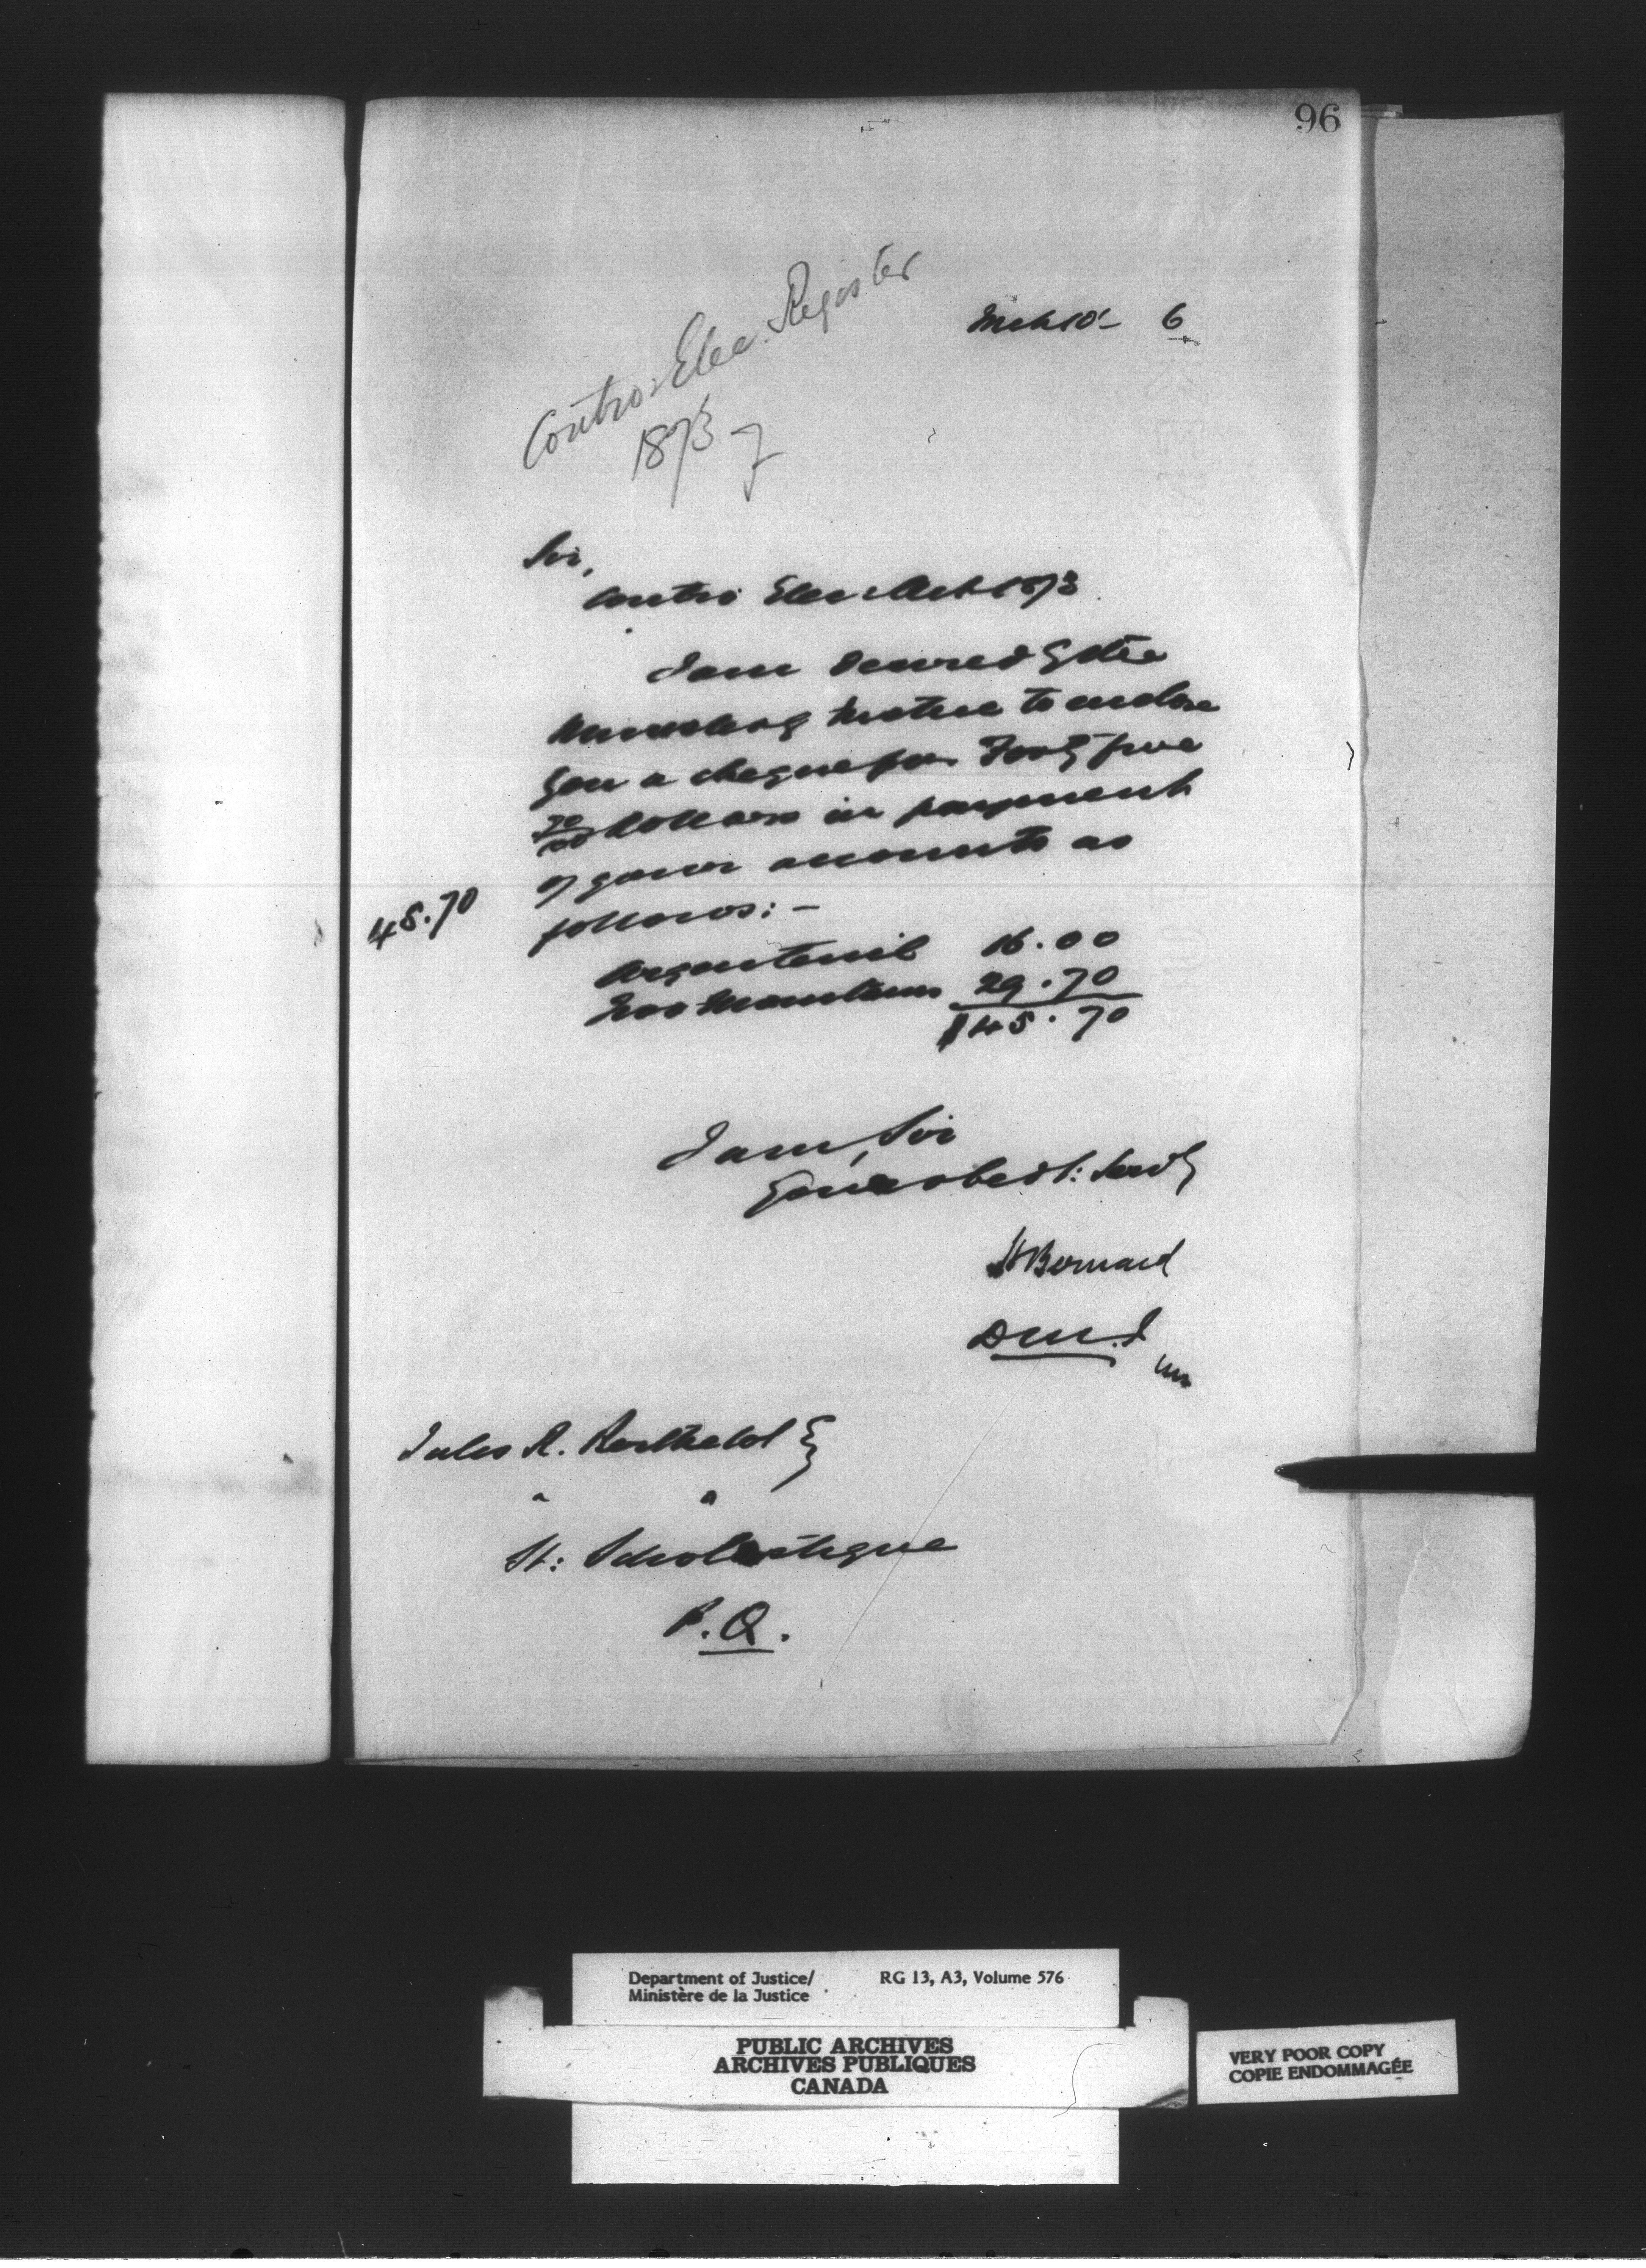 96
Contro: Elec. Register
1873
Mch 10 - 6
Sir,
Contro Elec: Act 1873
I am desired by the
Minister of Justice to enclose
you a cheque for Forty five
70/100 dollars in payment
of your accounts as
follows: -
45.70
Argenteuil 16.00
Two Mountains 29.70
$45.70
I am, Sir
Your obedt: Servt
H Bernard
D M. J
Jules R. Berthelot
St: Scholastique
P.Q.
Department of Justice/
Ministère de la Justice
RG 13, A3, Volume 576
PUBLIC ARCHIVES
ARCHIVES PUBLIQUES
CANADA
VERY POOR COPY
COPIE ENDOMMAGÉE